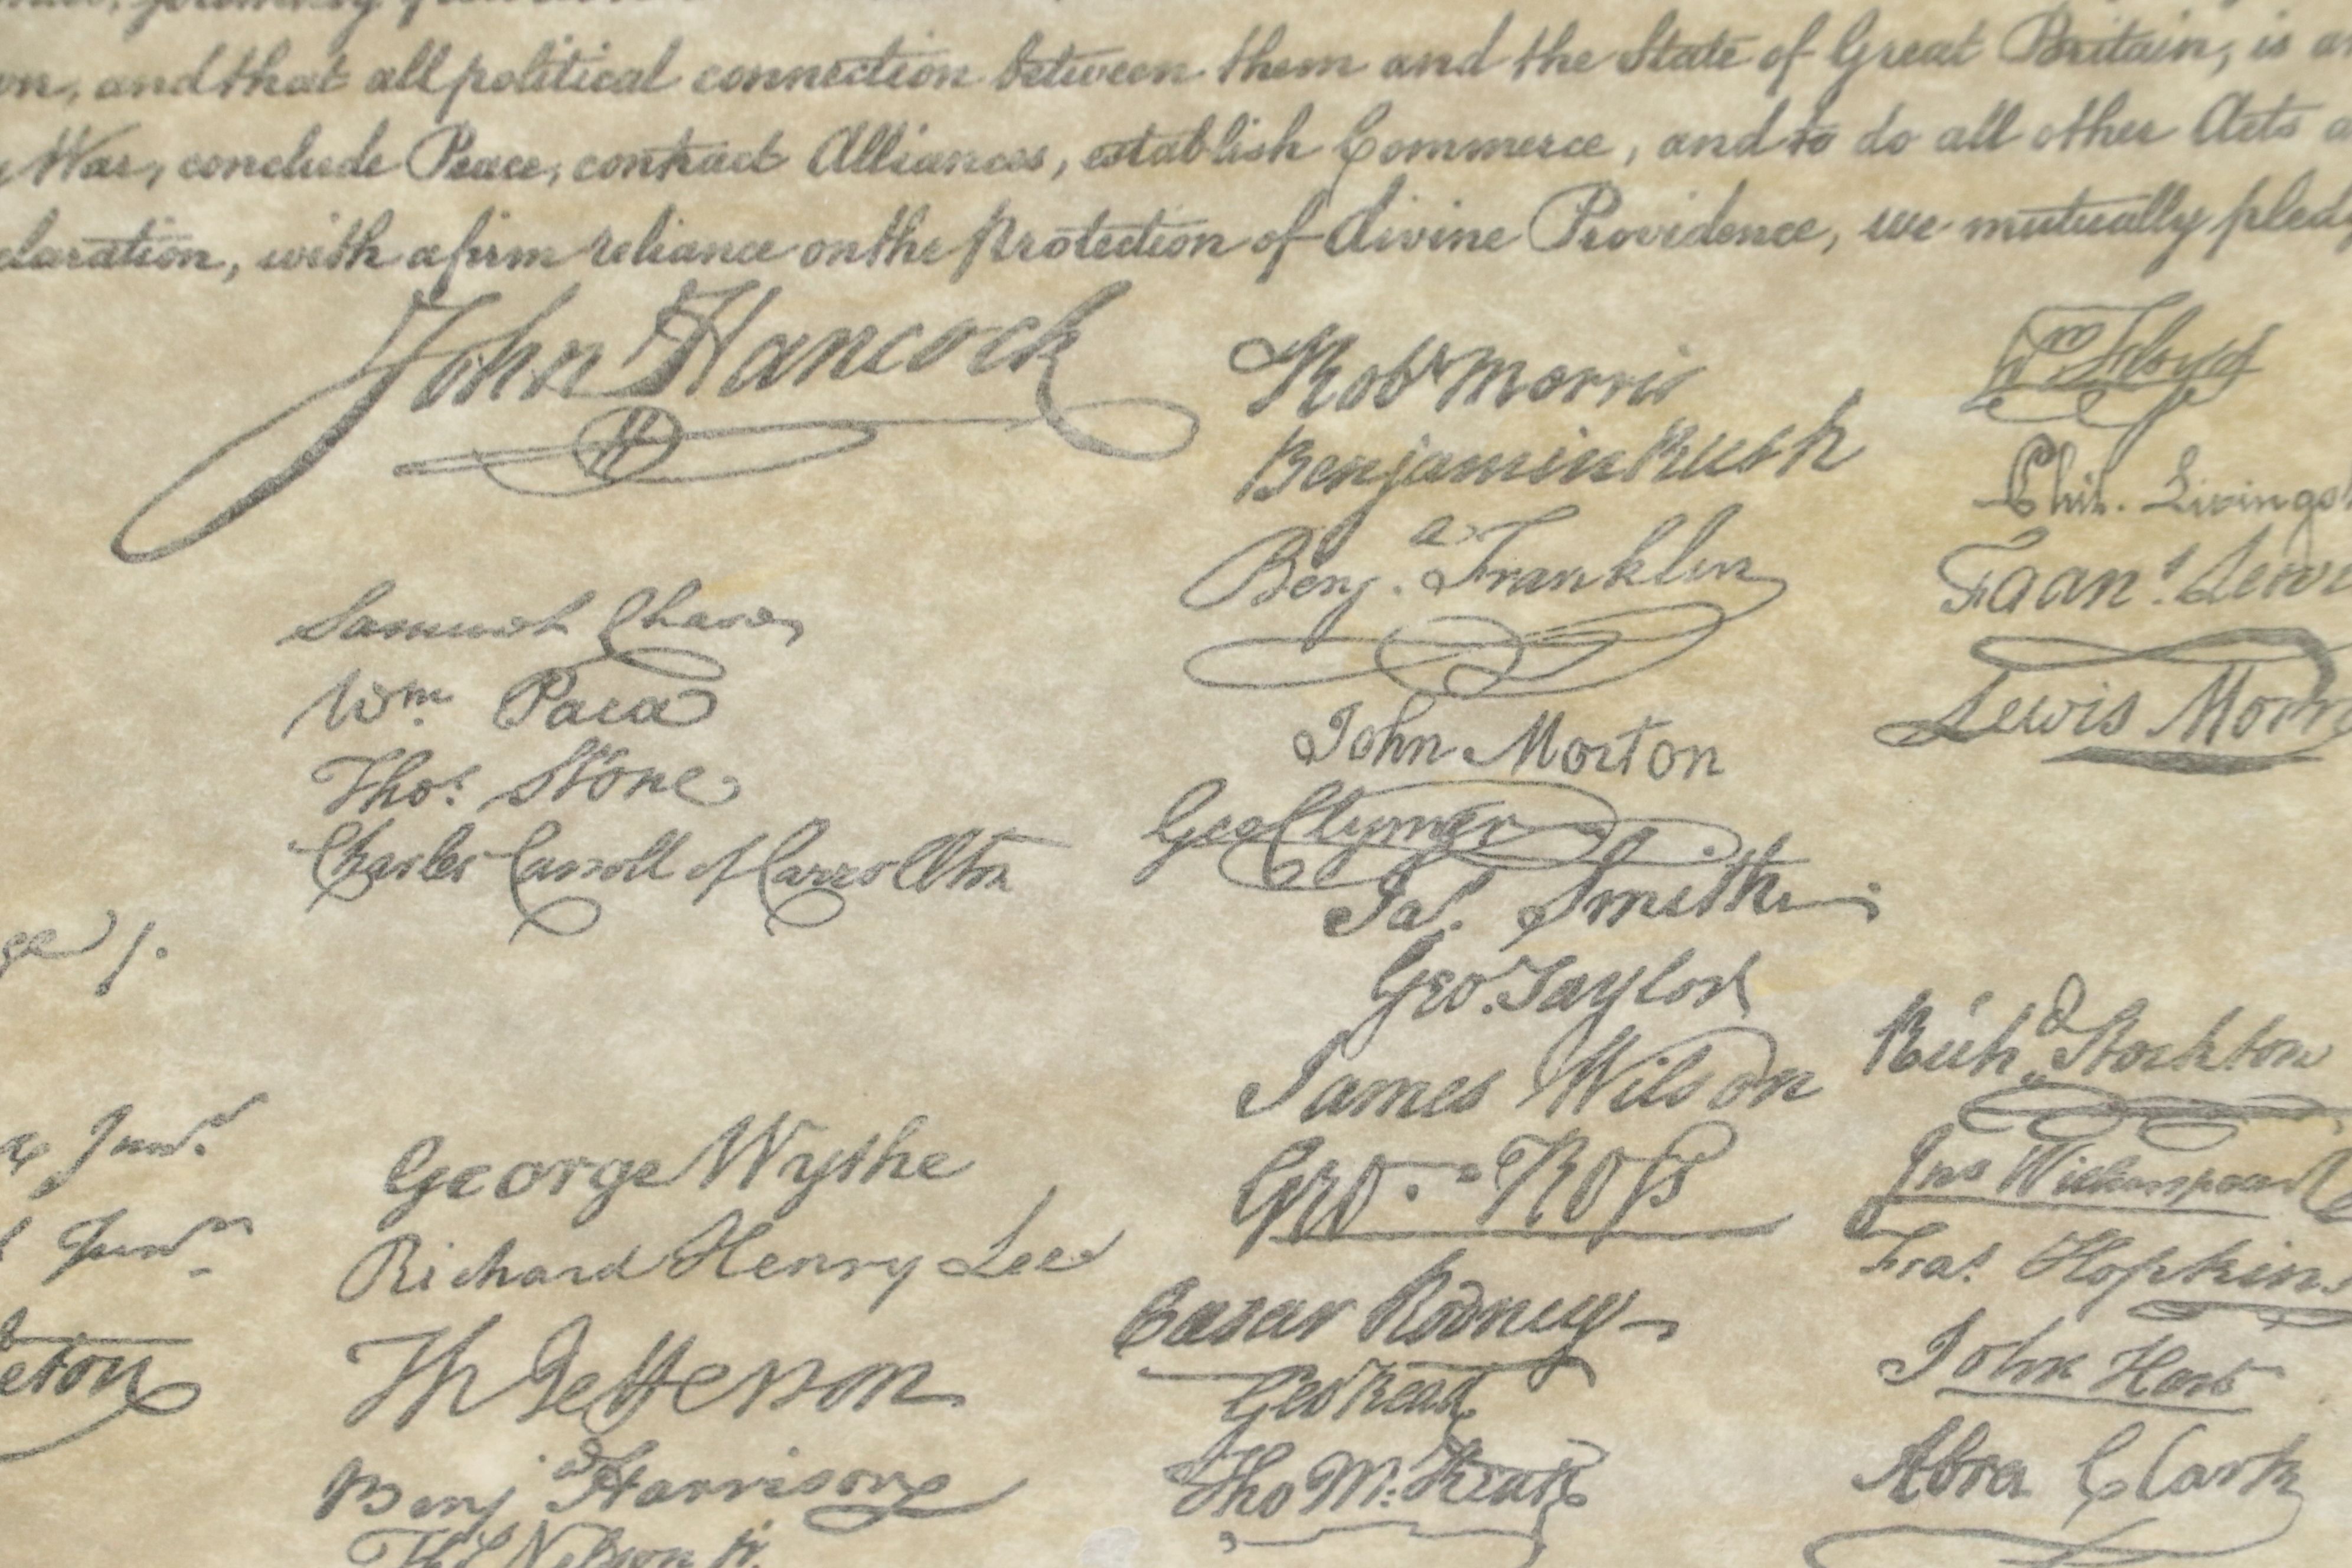 and that all political connection between them and the State of Great Britain, is
War, conclude Peace, contract Alliances, establish Commerce, and to do all other Acts
claration, with a firm reliance on the Protection of divine Providence, we mutually pled
John Hancock
Samuel Chase
Wm. Paca
Thos. Stone
Charles Carroll of Carrollton
George Wythe
Richard Henry Lee
Th Jefferson
Benja Harrison
Thos Nelson jr.
Robt Morris
Benjamin Rush
Benja. Franklin
John Morton
Geo Clymer
Jas. Smith
Geo. Taylor
James Wilson
Geo. Ross
Caesar Rodney
Geo Read
Tho M: Kean
Wm. Floyd
Phil. Livingst
Frans. Lewi
Lewis Morr
Richd. Stockton
Jno Witherspoon
Fras. Hopkins
John Hart
Abra Clark